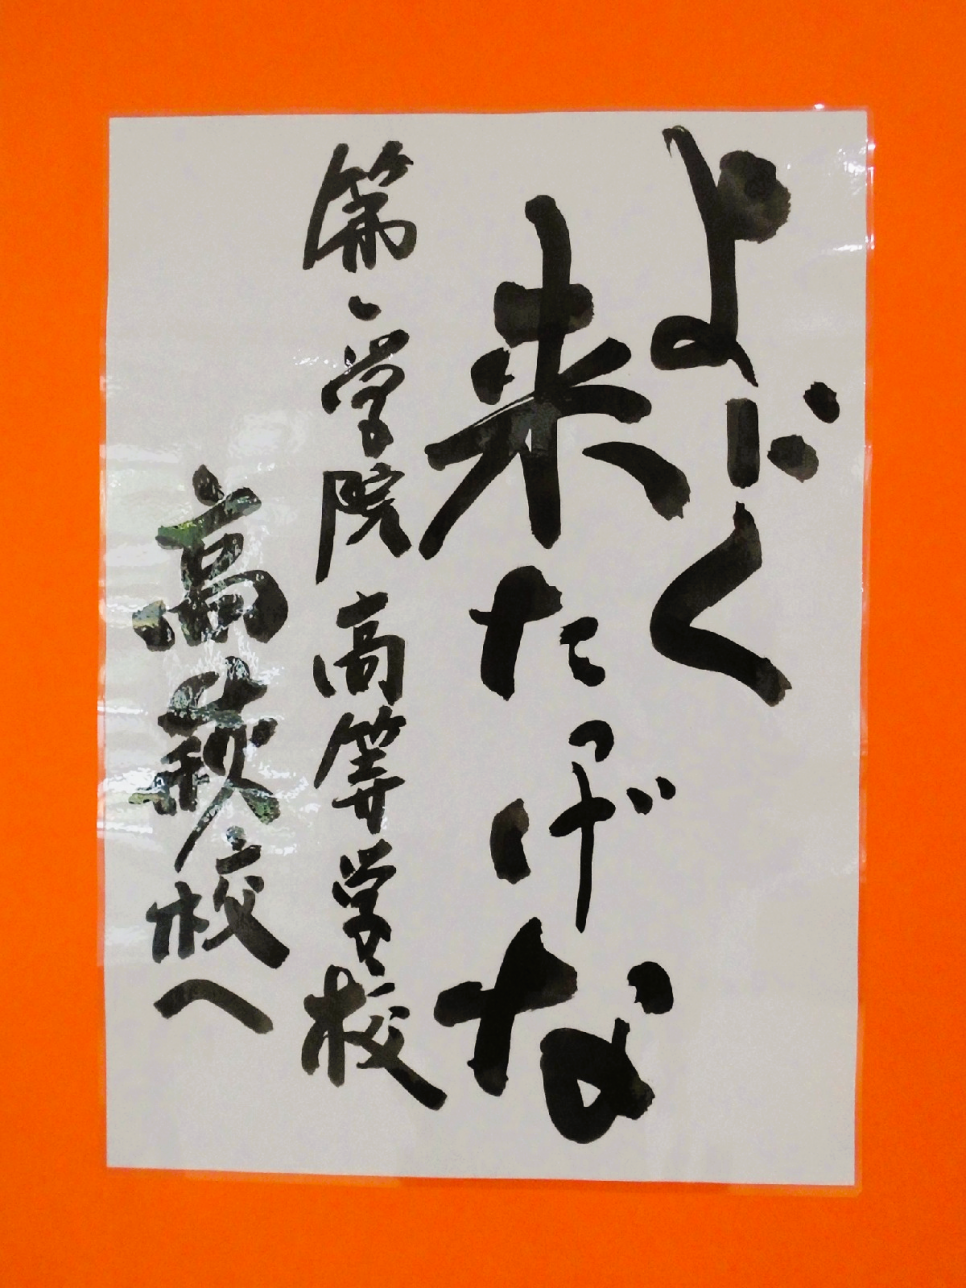 よーぐ
来たっげな
第一学院高等学校
高萩校へ